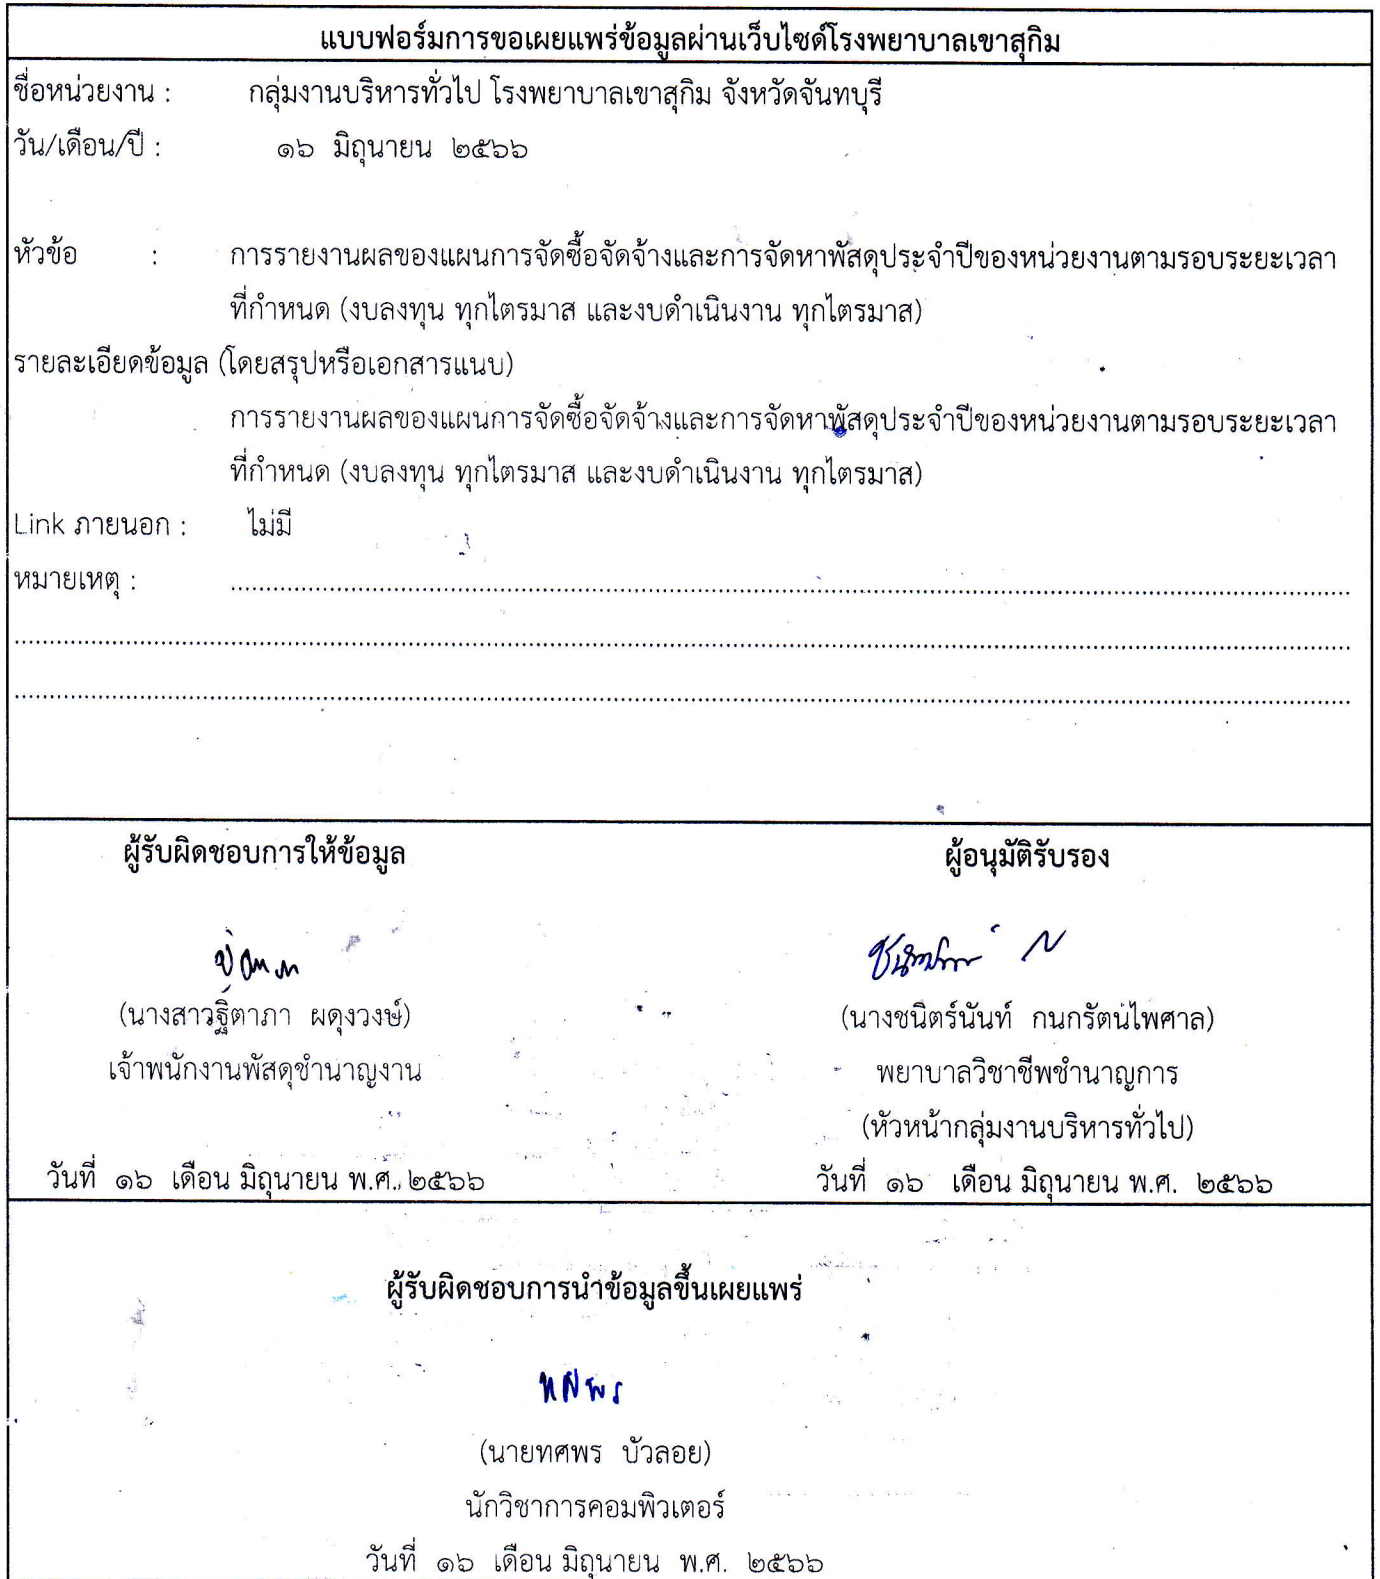 แบบฟอร์มการขอเผยแพร่ข้อมูลผ่านเว็บไซด์โรงพยาบาลเขาสุกิม
ชื่อหน่วยงาน : กลุ่มงานบริหารทั่วไป โรงพยาบาลเขาสุกิม จังหวัดจันทบุรี
วัน/เดือน/ปี : ๑๖ มิถุนายน ๒๕๖๖
หัวข้อ : การรายงานผลของแผนการจัดซื้อจัดจ้างและการจัดหาพัสดุประจำปีของหน่วยงานตามรอบระยะเวลา
ที่กำหนด (งบลงทุน ทุกไตรมาส และงบดำเนินงาน ทุกไตรมาส)
รายละเอียดข้อมูล (โดยสรุปหรือเอกสารแนบ)
การรายงานผลของแผนการจัดซื้อจัดจ้างและการจัดหาพัสดุประจำปีของหน่วยงานตามรอบระยะเวลา
ที่กำหนด (งบลงทุน ทุกไตรมาส และงบดำเนินงาน ทุกไตรมาส)
Link ภายนอก : ไม่มี
หมายเหตุ :
ผู้รับผิดชอบการให้ข้อมูล ผู้อนุมัติรับรอง
(นางสาวฐิตาภา ผดุงวงษ์) (นางชนิตร์นันท์ กนกรัตน์ไพศาล)
เจ้าพนักงานพัสดุชำนาญงาน พยาบาลวิชาชีพชำนาญการ
(หัวหน้ากลุ่มงานบริหารทั่วไป)
วันที่ ๑๖ เดือน มิถุนายน พ.ศ. ๒๕๖๖ วันที่ ๑๖ เดือน มิถุนายน พ.ศ. ๒๕๖๖
ผู้รับผิดชอบการนำข้อมูลขึ้นเผยแพร่
ทศพร
(นายทศพร บัวลอย)
นักวิชาการคอมพิวเตอร์
วันที่ ๑๖ เดือน มิถุนายน พ.ศ. ๒๕๖๖